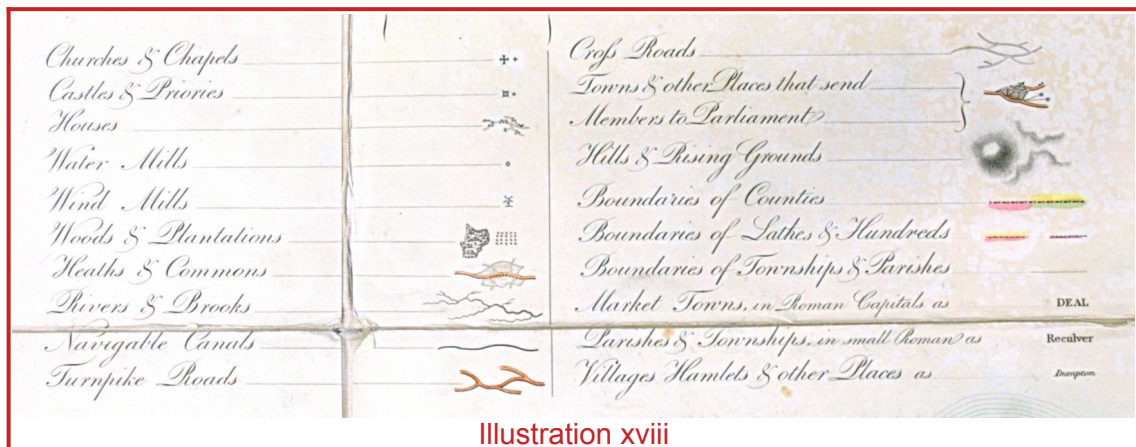 Churches & Chapels
Castles & Priories
Houses
Water Mills
Wind Mills
Woods & Plantations
Heaths & Commons
Rivers & Brooks
Navigable Canals
Turnpike Roads
Croſs Roads
Towns & other Places that send
Members to Parliament
Hills & Rising Grounds
Boundaries of Counties
Boundaries of Lathes & Hundreds
Boundaries of Townships & Parishes
Market Towns, in Roman Capitals as DEAL
Parishes & Townships, in small Roman as Reculver
Villages Hamlets & other Places as
Illustration xviii